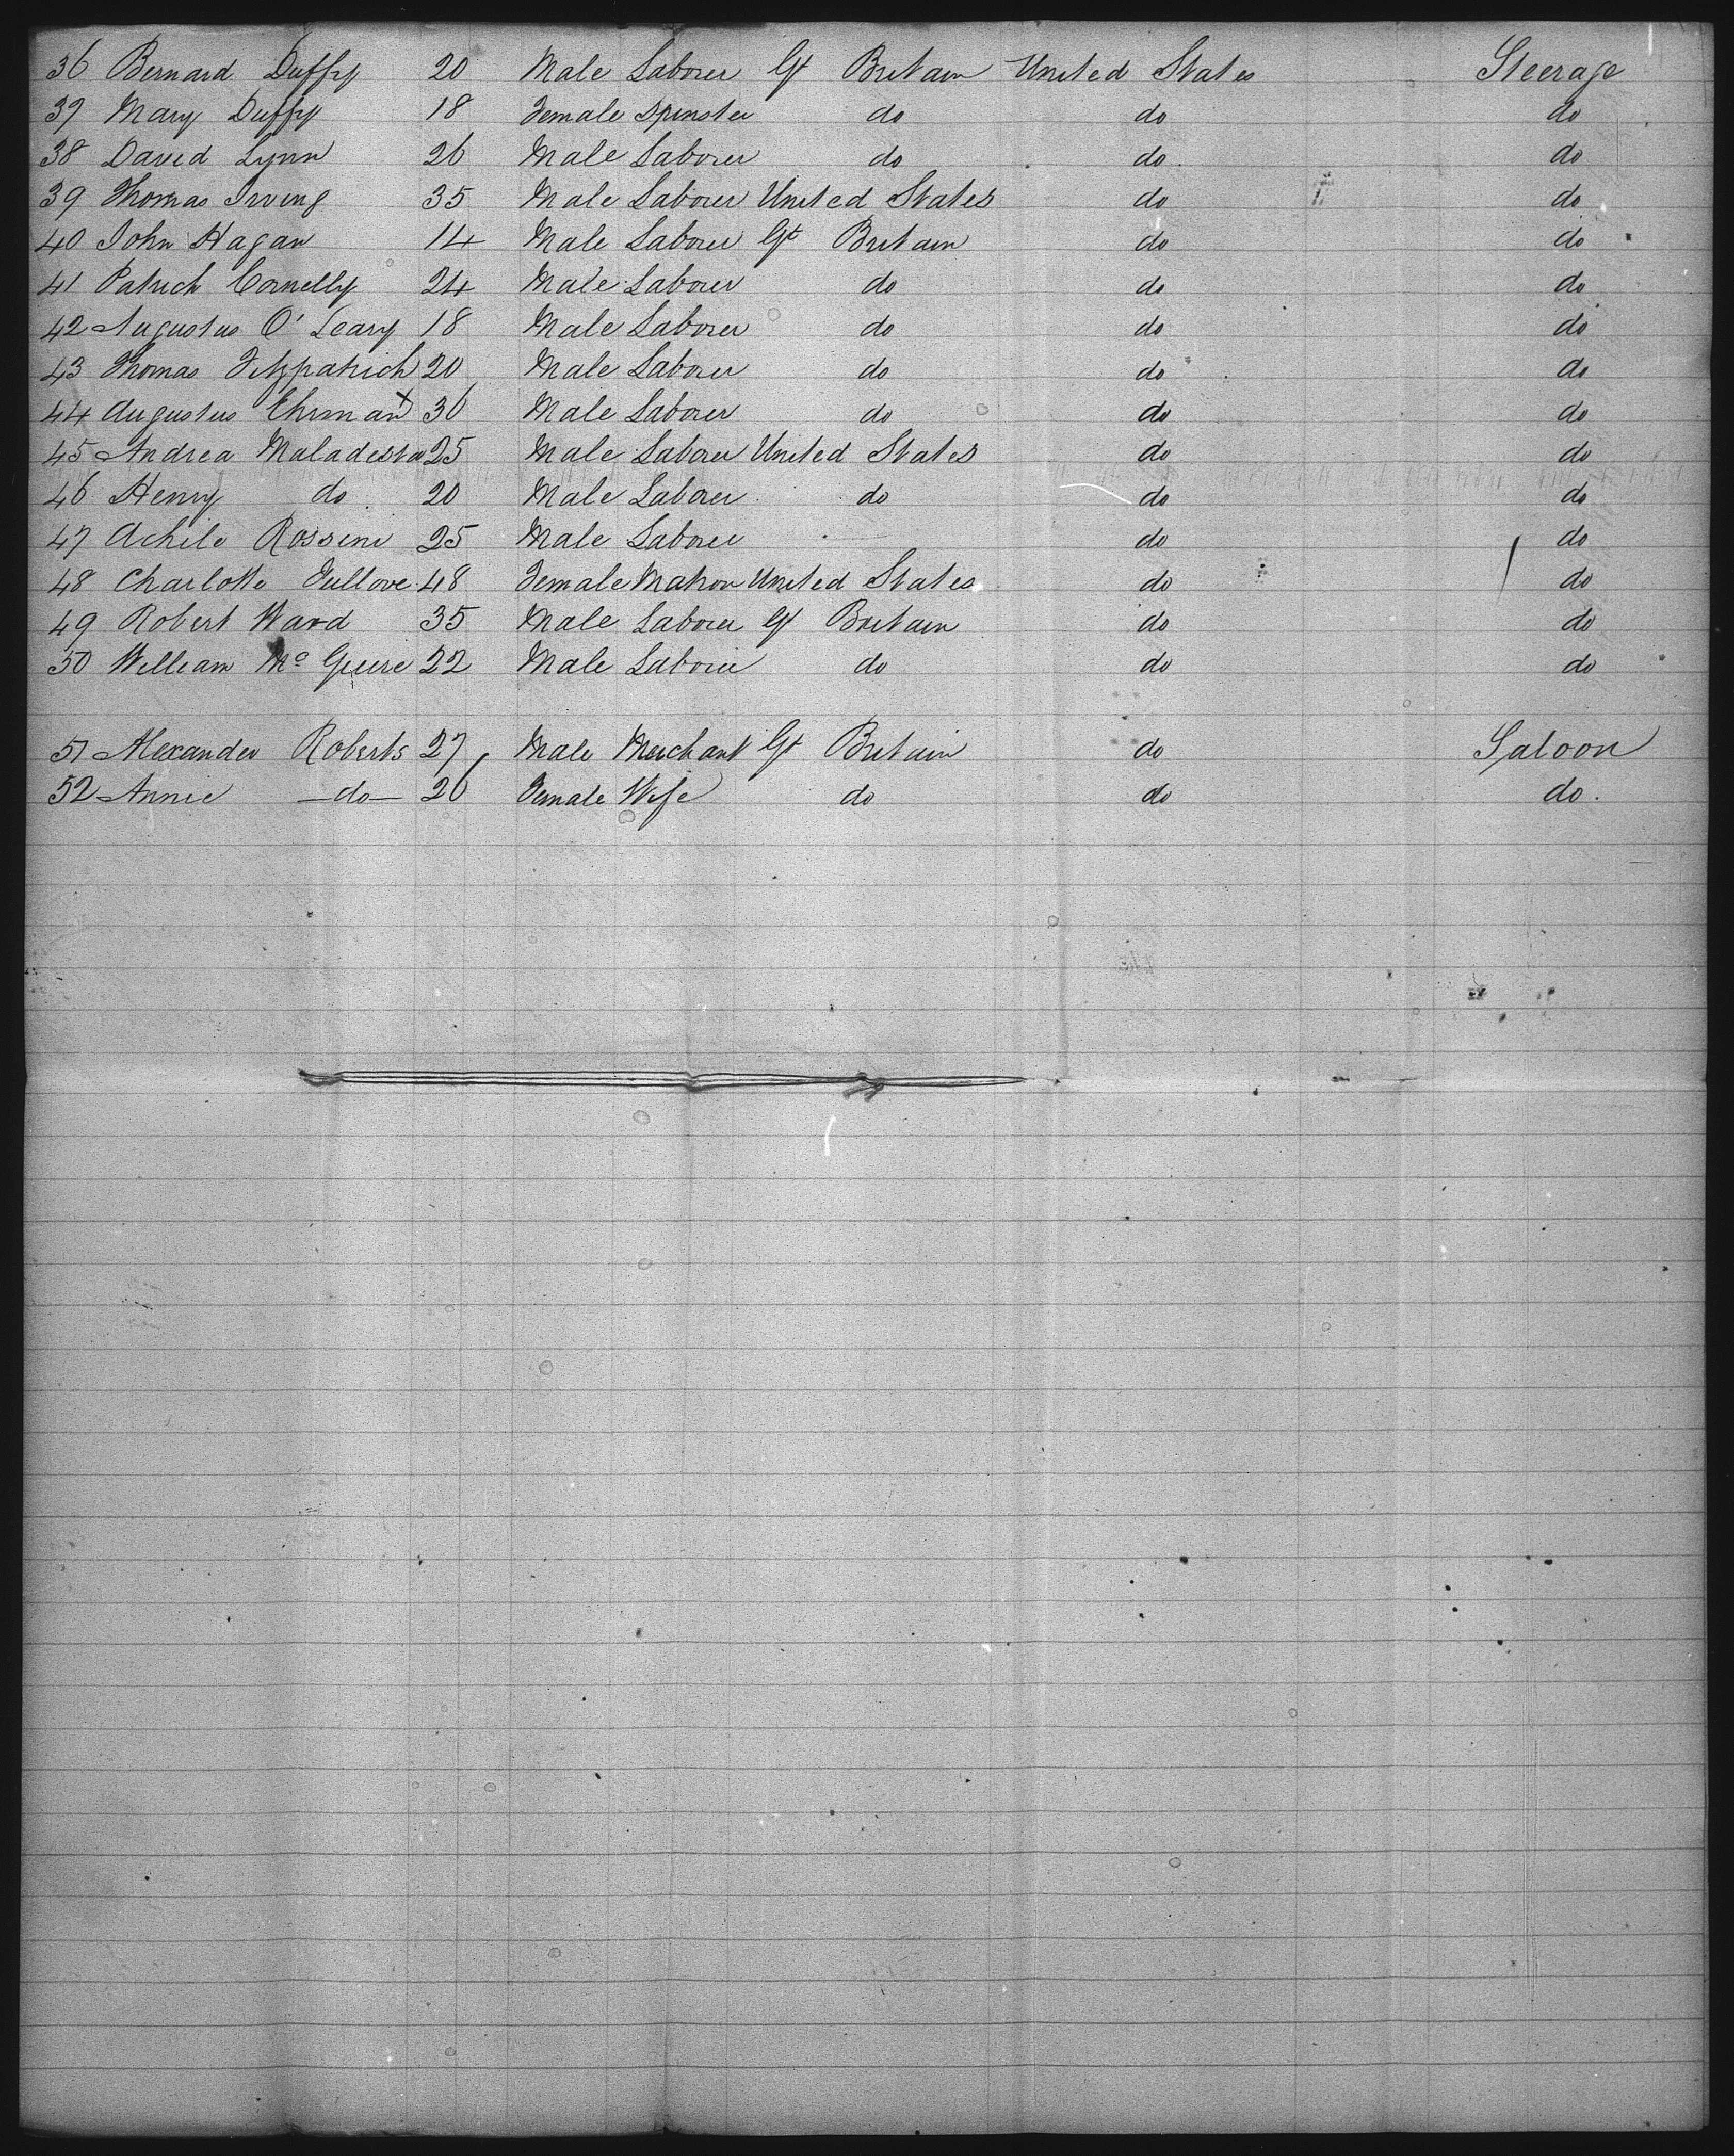 36 Bernard Duffy 20 Male Laborer Gt Britain United States Steerage
37 Mary Duffy 18 Female Spinster do do do
38 David Lynn 26 Male Laborer do do do
39 Thomas Irving 35 Male Laborer United States do do
40 John Hagan 14 Male Laborer Gt Britain do do
41 Patrick Connelly 24 Male Laborer do do do
42 Augustus O'Leary 18 Male Laborer do do do
43 Thomas Fitzpatrick 20 Male Laborer do do do
44 Augustus Ehrman x 30 Male Laborer do do do
45 Andrea Maladesta 25 Male Laborer United States do do
46 Henry do 20 Male Laborer do do do
47 Achile Rossini 25 Male Laborer do do
48 Charlotte Fullove 48 Female Matron United States do do
49 Robert Ward 35 Male Laborer Gt Britain do do
50 William Mc Guire 22 Male Laborer do do do
51 Alexander Roberts 27 Male Merchant Gt Britain do Saloon
52 Annie —do— 26 Female Wife do do do.